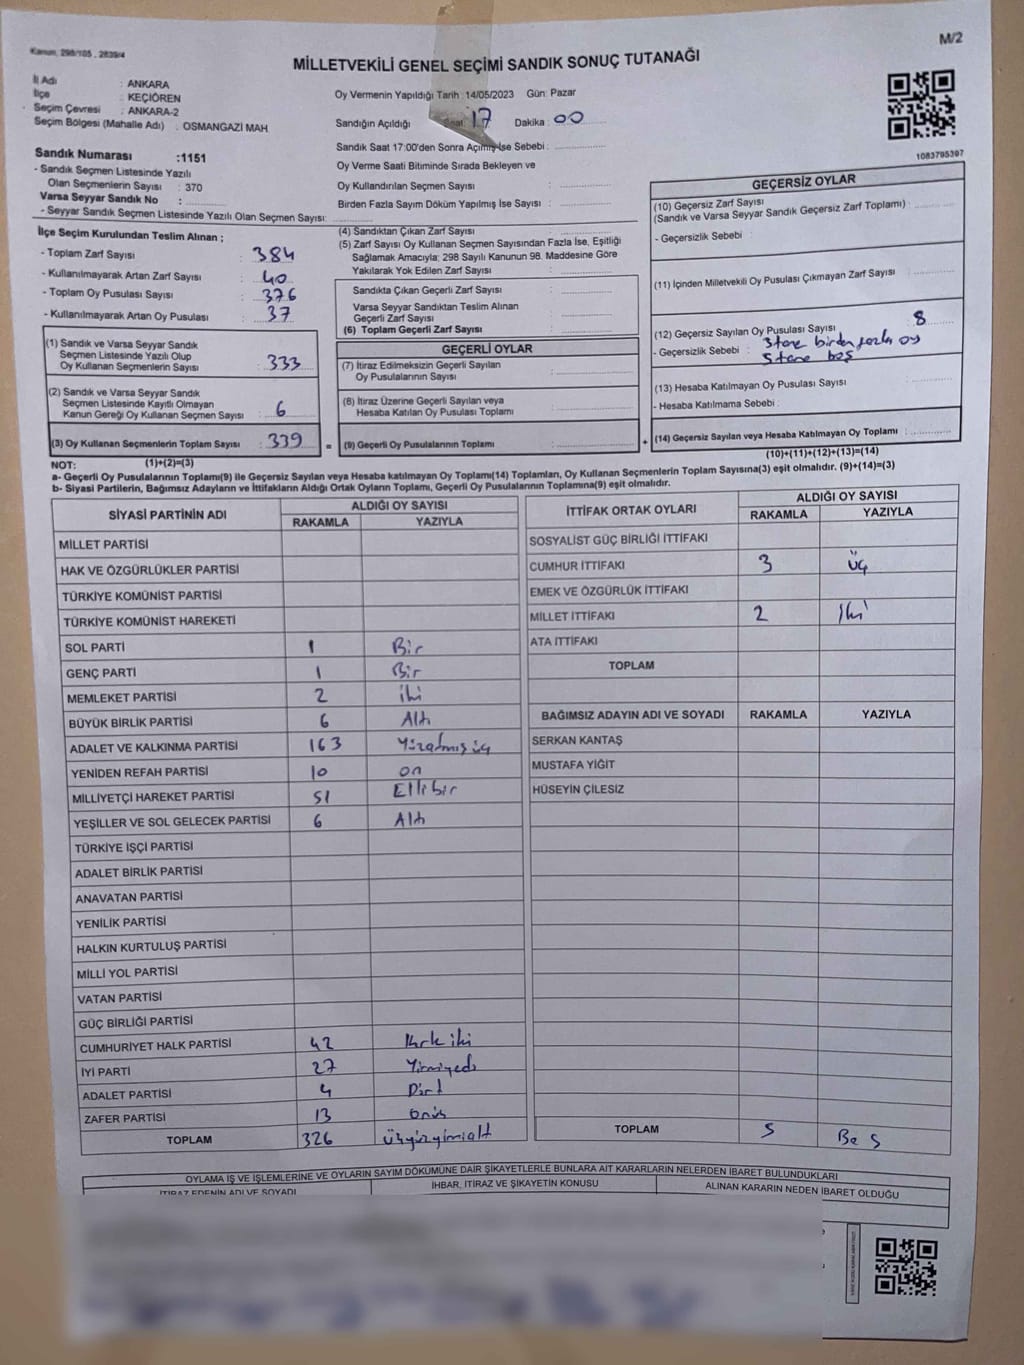 Kanun, 298/105 , 2839/4
M/2
MİLLETVEKİLİ GENEL SEÇİMİ SANDIK SONUÇ TUTANAĞI
İl Adı : ANKARA
İlçe : KEÇİÖREN
Seçim Çevresi : ANKARA-2
Seçim Bölgesi (Mahalle Adı) : OSMANGAZİ MAH.
Oy Vermenin Yapıldığı Tarih :14/05/2023 Gün: Pazar
Sandığın Açıldığı Saat: 17 Dakika : 00
Sandık Saat 17:00'den Sonra Açılmış İse Sebebi :
Oy Verme Saati Bitiminde Sırada Bekleyen ve
Oy Kullandırılan Seçmen Sayısı :
Birden Fazla Sayım Döküm Yapılmış İse Sayısı :
1083795397
Sandık Numarası :1151
- Sandık Seçmen Listesinde Yazılı
Olan Seçmenlerin Sayısı : 370
Varsa Seyyar Sandık No :
- Seyyar Sandık Seçmen Listesinde Yazılı Olan Seçmen Sayısı:
İlçe Seçim Kurulundan Teslim Alınan ;
- Toplam Zarf Sayısı : 384
- Kullanılmayarak Artan Zarf Sayısı : 40
- Toplam Oy Pusulası Sayısı : 376
- Kullanılmayarak Artan Oy Pusulası : 37
(1) Sandık ve Varsa Seyyar Sandık
Seçmen Listesinde Yazılı Olup
Oy Kullanan Seçmenlerin Sayısı : 333
(2) Sandık ve Varsa Seyyar Sandık
Seçmen Listesinde Kayıtlı Olmayan
Kanun Gereği Oy Kullanan Seçmen Sayısı : 6
(3) Oy Kullanan Seçmenlerin Toplam Sayısı : 339
(1)+(2)=(3)
(4) Sandıktan Çıkan Zarf Sayısı :
(5) Zarf Sayısı Oy Kullanan Seçmen Sayısından Fazla İse, Eşitliği
Sağlamak Amacıyla; 298 Sayılı Kanunun 98. Maddesine Göre
Yakılarak Yok Edilen Zarf Sayısı :
Sandıkta Çıkan Geçerli Zarf Sayısı :
Varsa Seyyar Sandıktan Teslim Alınan
Geçerli Zarf Sayısı :
(6) Toplam Geçerli Zarf Sayısı :
GEÇERLİ OYLAR
(7) İtiraz Edilmeksizin Geçerli Sayılan
Oy Pusulalarının Sayısı :
(8) İtiraz Üzerine Geçerli Sayılan veya
Hesaba Katılan Oy Pusulası Toplamı :
= (9) Geçerli Oy Pusulalarının Toplamı :
GEÇERSİZ OYLAR
(10) Geçersiz Zarf Sayısı
(Sandık ve Varsa Seyyar Sandık Geçersiz Zarf Toplamı) :
- Geçersizlik Sebebi :
(11) İçinden Milletvekili Oy Pusulası Çıkmayan Zarf Sayısı :
(12) Geçersiz Sayılan Oy Pusulası Sayısı : 8
- Geçersizlik Sebebi : 3 tane birden fazla oy
5 tane boş
(13) Hesaba Katılmayan Oy Pusulası Sayısı :
- Hesaba Katılmama Sebebi :
+ (14) Geçersiz Sayılan veya Hesaba Katılmayan Oy Toplamı :
(10)+(11)+(12)+(13)=(14)
NOT:
a- Geçerli Oy Pusulalarının Toplamı(9) ile Geçersiz Sayılan veya Hesaba katılmayan Oy Toplamı(14) Toplamları, Oy Kullanan Seçmenlerin Toplam Sayısına(3) eşit olmalıdır. (9)+(14)=(3)
b- Siyasi Partilerin, Bağımsız Adayların ve İttifakların Aldığı Ortak Oyların Toplamı, Geçerli Oy Pusulalarının Toplamına(9) eşit olmalıdır.
SİYASİ PARTİNİN ADI ALDIĞI OY SAYISI
RAKAMLA YAZIYLA
MİLLET PARTİSİ
HAK VE ÖZGÜRLÜKLER PARTİSİ
TÜRKİYE KOMÜNİST PARTİSİ
TÜRKİYE KOMÜNİST HAREKETİ
SOL PARTİ 1 Bir
GENÇ PARTİ 1 Bir
MEMLEKET PARTİSİ 2 iki
BÜYÜK BİRLİK PARTİSİ 6 Altı
ADALET VE KALKINMA PARTİSİ 163 Yüzatmışüç
YENİDEN REFAH PARTİSİ 10 on
MİLLİYETÇİ HAREKET PARTİSİ 51 Ellibir
YEŞİLLER VE SOL GELECEK PARTİSİ 6 Altı
TÜRKİYE İŞÇİ PARTİSİ
ADALET BİRLİK PARTİSİ
ANAVATAN PARTİSİ
YENİLİK PARTİSİ
HALKIN KURTULUŞ PARTİSİ
MİLLİ YOL PARTİSİ
VATAN PARTİSİ
GÜÇ BİRLİĞİ PARTİSİ
CUMHURİYET HALK PARTİSİ 42 Kırk iki
İYİ PARTİ 27 Yirmiyedi
ADALET PARTİSİ 4 Dört
ZAFER PARTİSİ 13 onüç
TOPLAM 326 üçyüzyirmialtı
İTTİFAK ORTAK OYLARI ALDIĞI OY SAYISI
RAKAMLA YAZIYLA
SOSYALİST GÜÇ BİRLİĞİ İTTİFAKI
CUMHUR İTTİFAKI 3 üç
EMEK VE ÖZGÜRLÜK İTTİFAKI
MİLLET İTTİFAKI 2 iki
ATA İTTİFAKI
TOPLAM
BAĞIMSIZ ADAYIN ADI VE SOYADI RAKAMLA YAZIYLA
SERKAN KANTAŞ
MUSTAFA YİĞİT
HÜSEYİN ÇİLESİZ
TOPLAM 5 Beş
OYLAMA İŞ VE İŞLEMLERİNE VE OYLARIN SAYIM DÖKÜMÜNE DAİR ŞİKAYETLERLE BUNLARA AİT KARARLARIN NELERDEN İBARET BULUNDUKLARI
İTİRAZ EDENİN ADI VE SOYADI İHBAR, İTİRAZ VE ŞİKAYETİN KONUSU ALINAN KARARIN NEDEN İBARET OLDUĞU